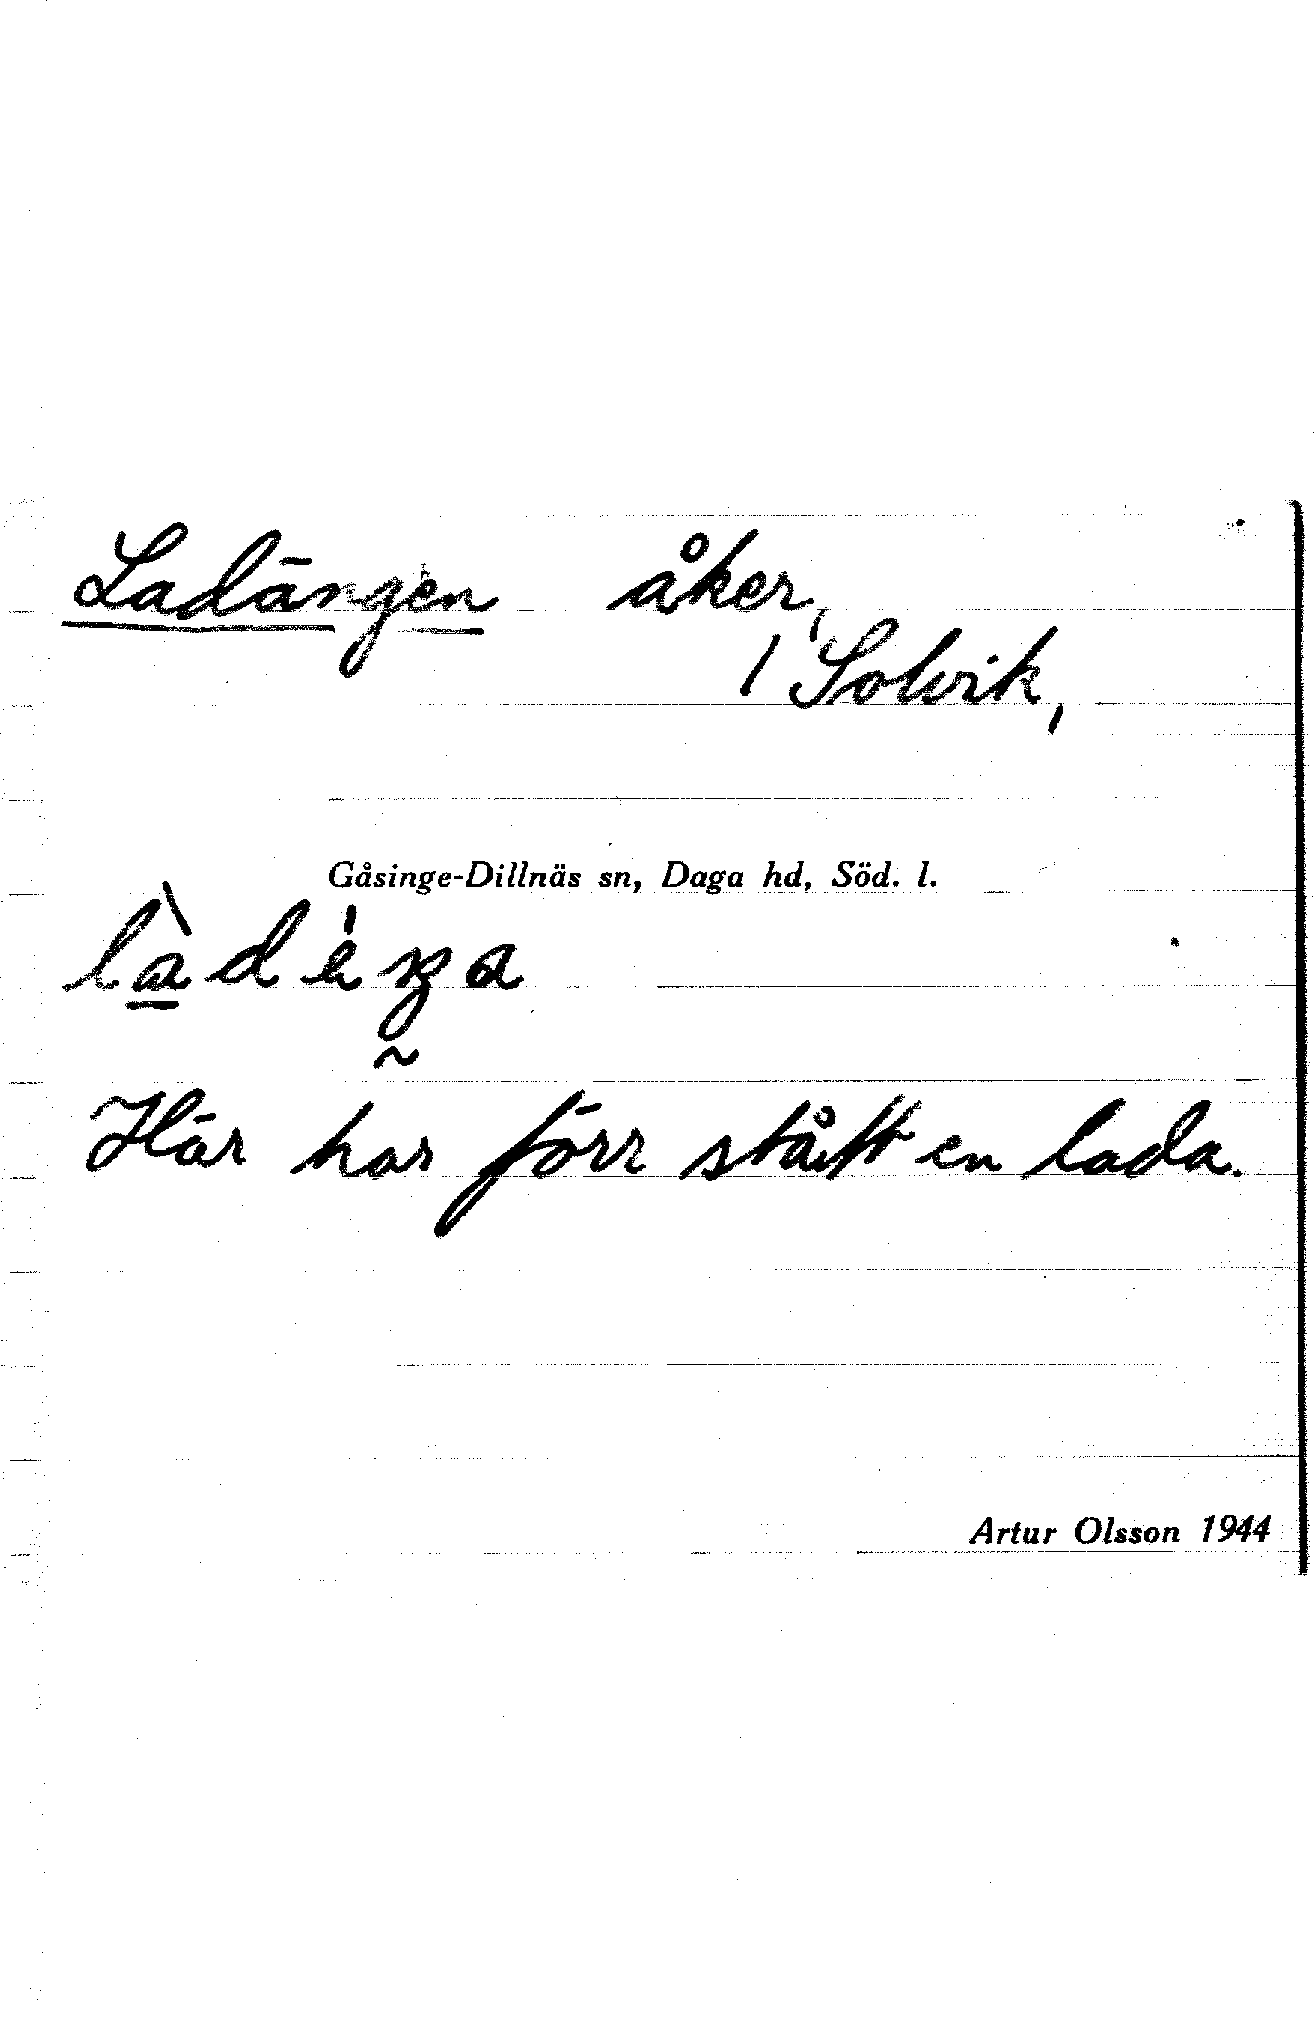 Ladängen åker,
/ Solvik,
Gåsinge-Dillnäs sn, Daga hd, Söd. l.
Här har förr stått en lada.
Artur Olsson 1944